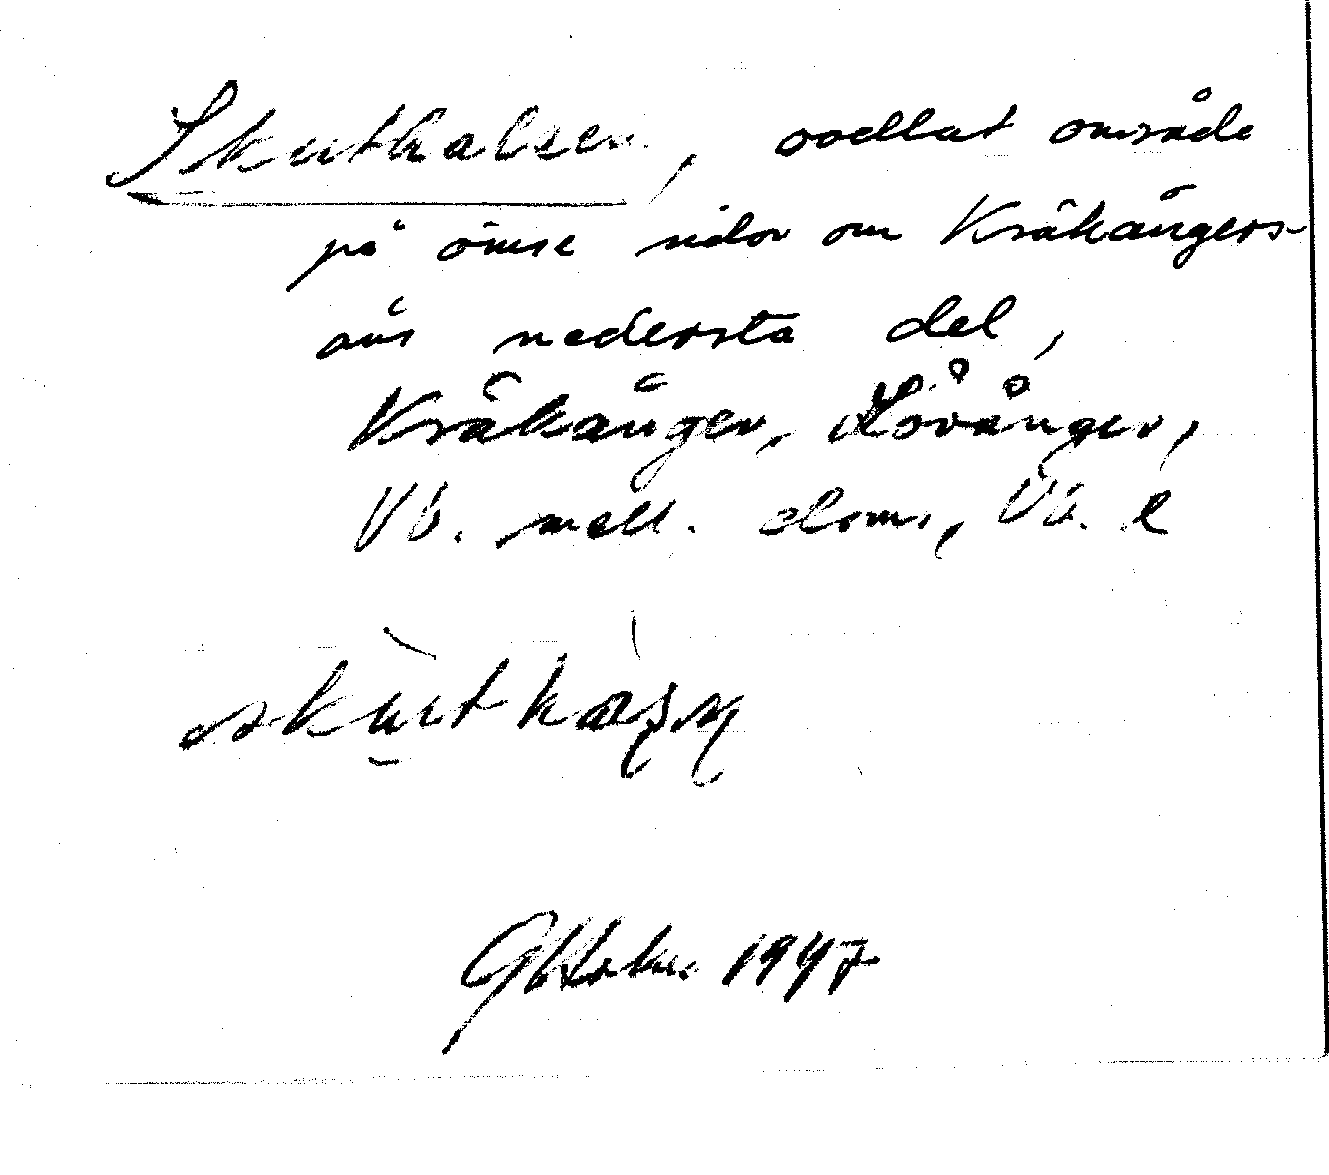 Skuthalsen, oodlat område
på ömse sidor om Kråkångers-
åns nedersta del,
Kråkånger, Lövånger,
Vb. mell. doms, Vb. l
skuthalsn
G Holm 1947